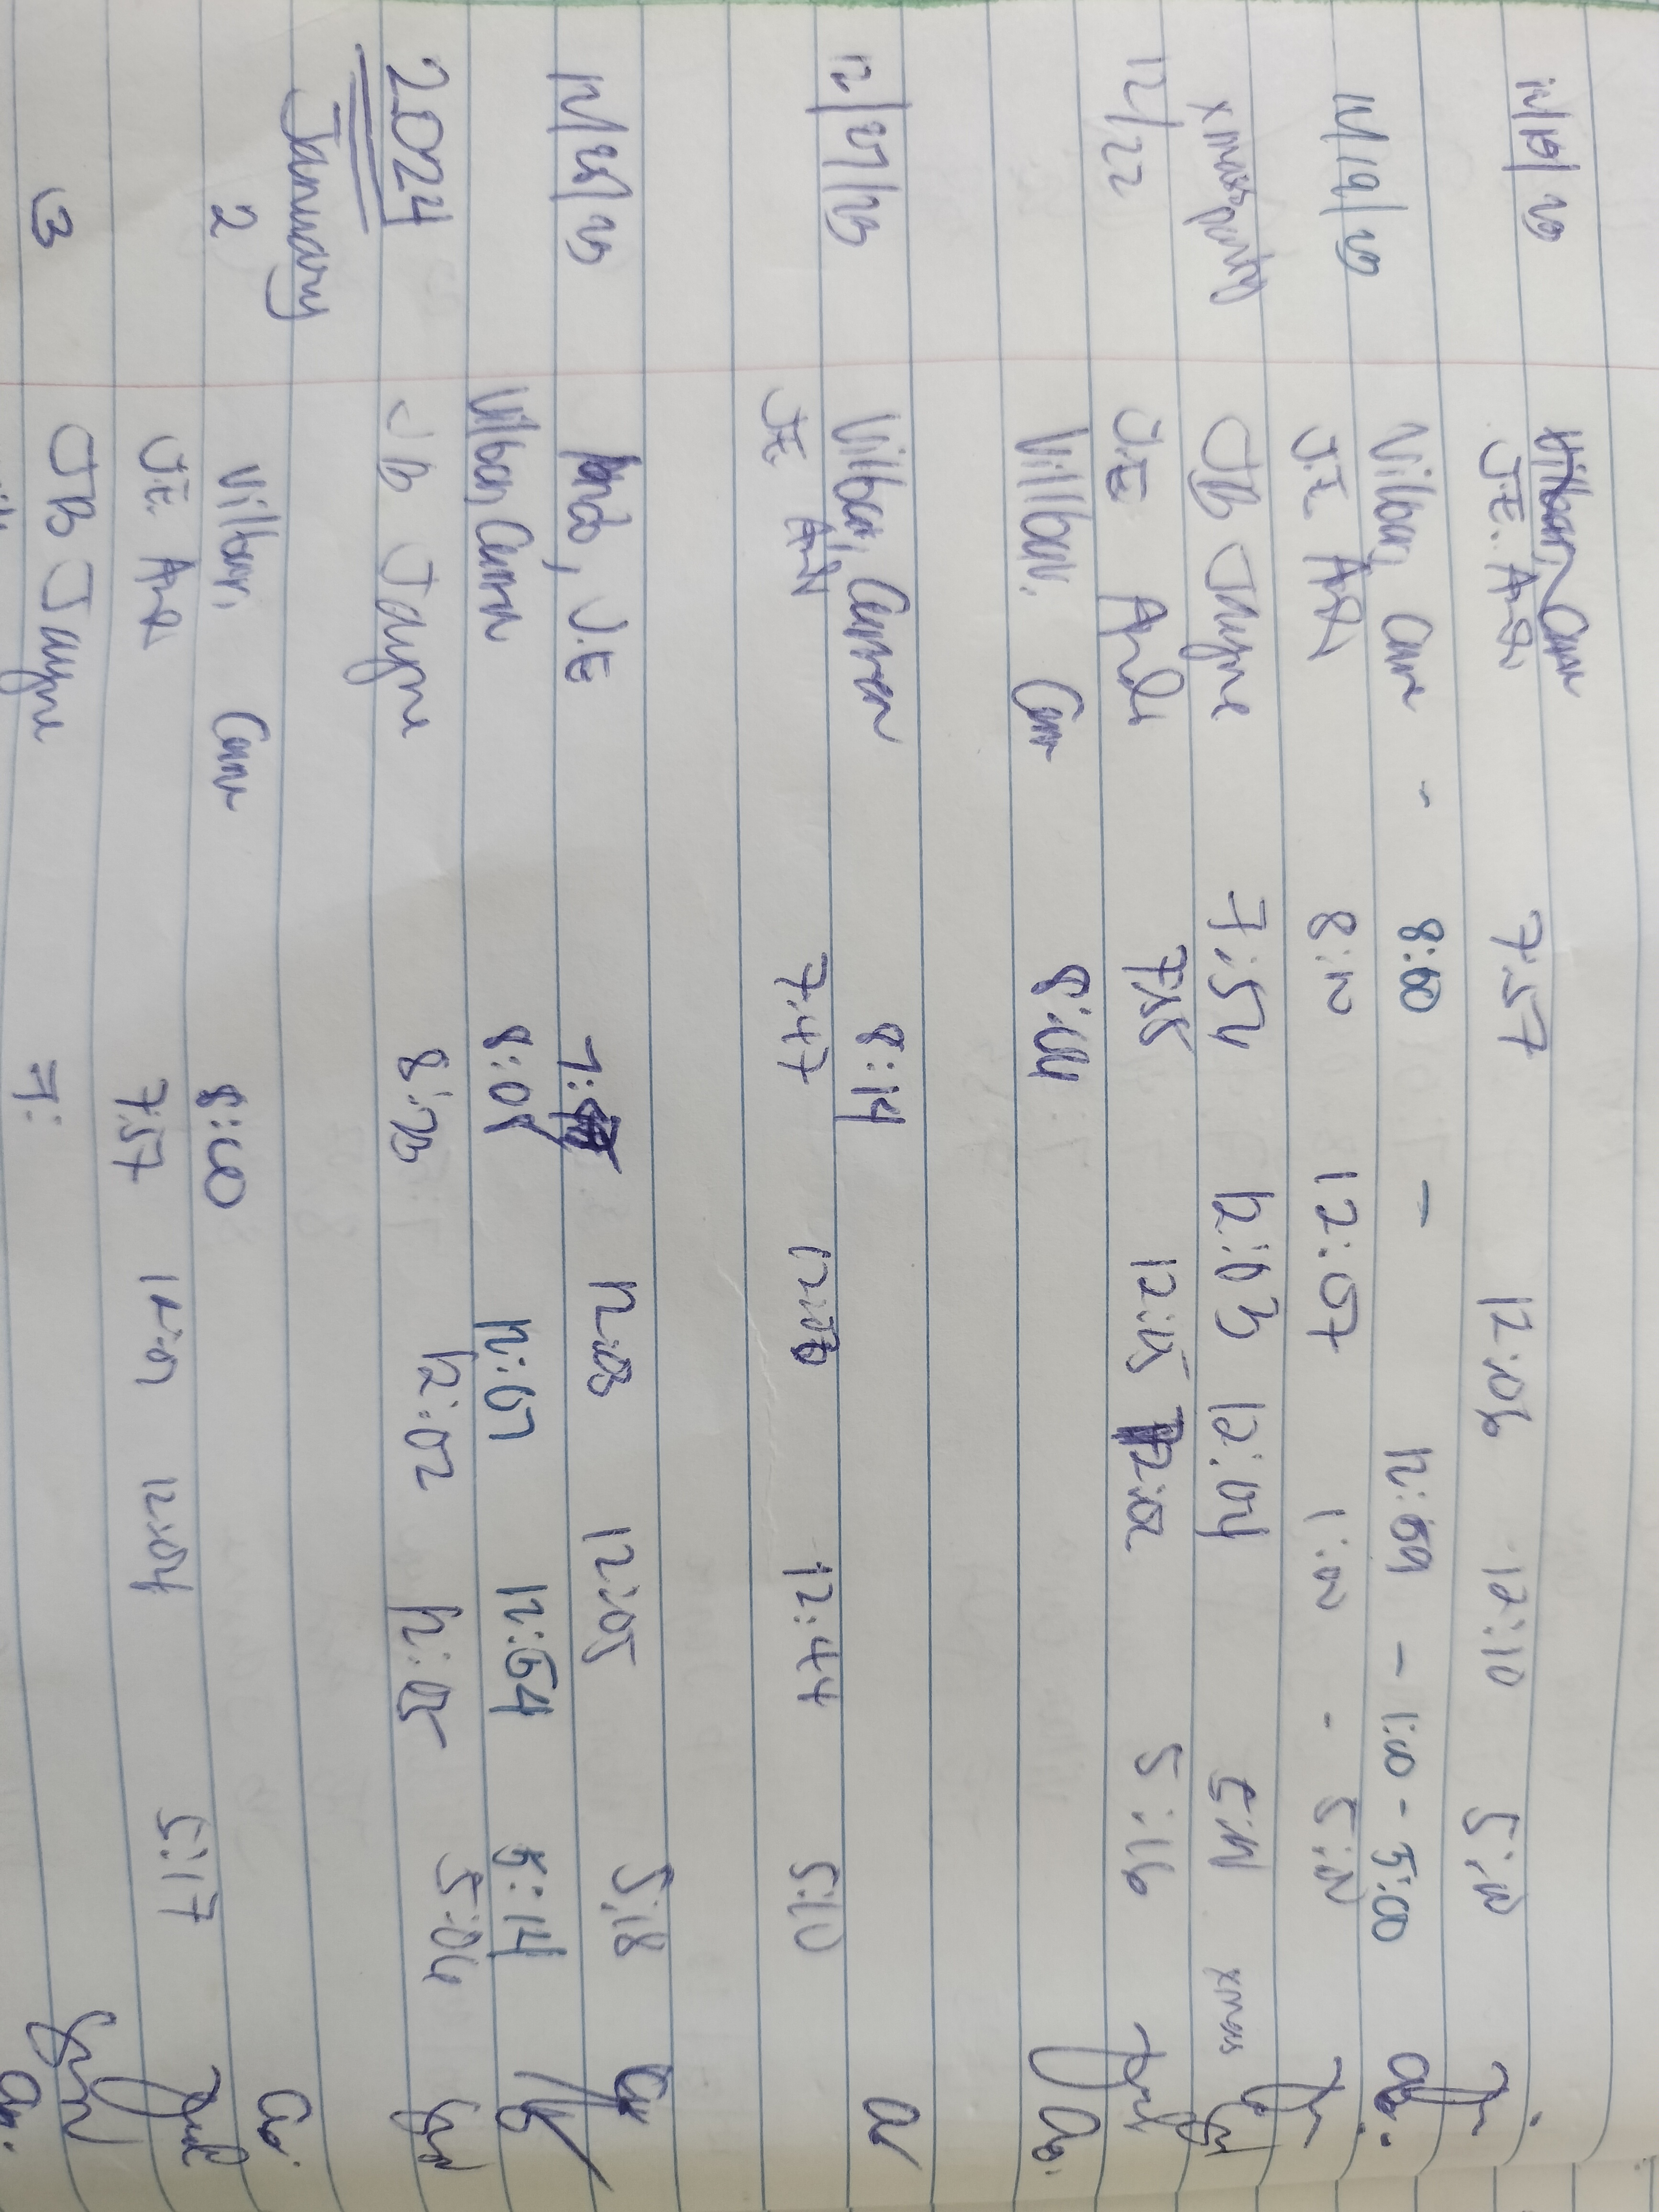 12/18/23 Vilbar, Carm
J.E. 7:57 12:06 12:10 5:10
12/19/23 Vilbar, Carm - 8:00 - 12:09 - 1:00 - 5:00
J.E. 8:10 12:07 1:00 - 5:10
xmass party JB Jayne 7:54 12:03 12:04 5:11 xmass
12/22 J.E Ando 7:55 12:15 12:02 5:16
Villbar, Carm 8:04
12/27/23 Vilbar, Carmen 8:14
J.E. 7:47 12:06 12:44 5:10
12/28/23 Ando, J.E 12:03 12:05 5:18
Vilbar, Carmn 8:05 12:07 12:54 5:14
2024 Jb Jayne 8:23 12:02 12:05 5:04
January
2 Vilbar, Carm 8:00
J.E. 7:57 12:01 12:04 5:17
3 JB Jayne 7: